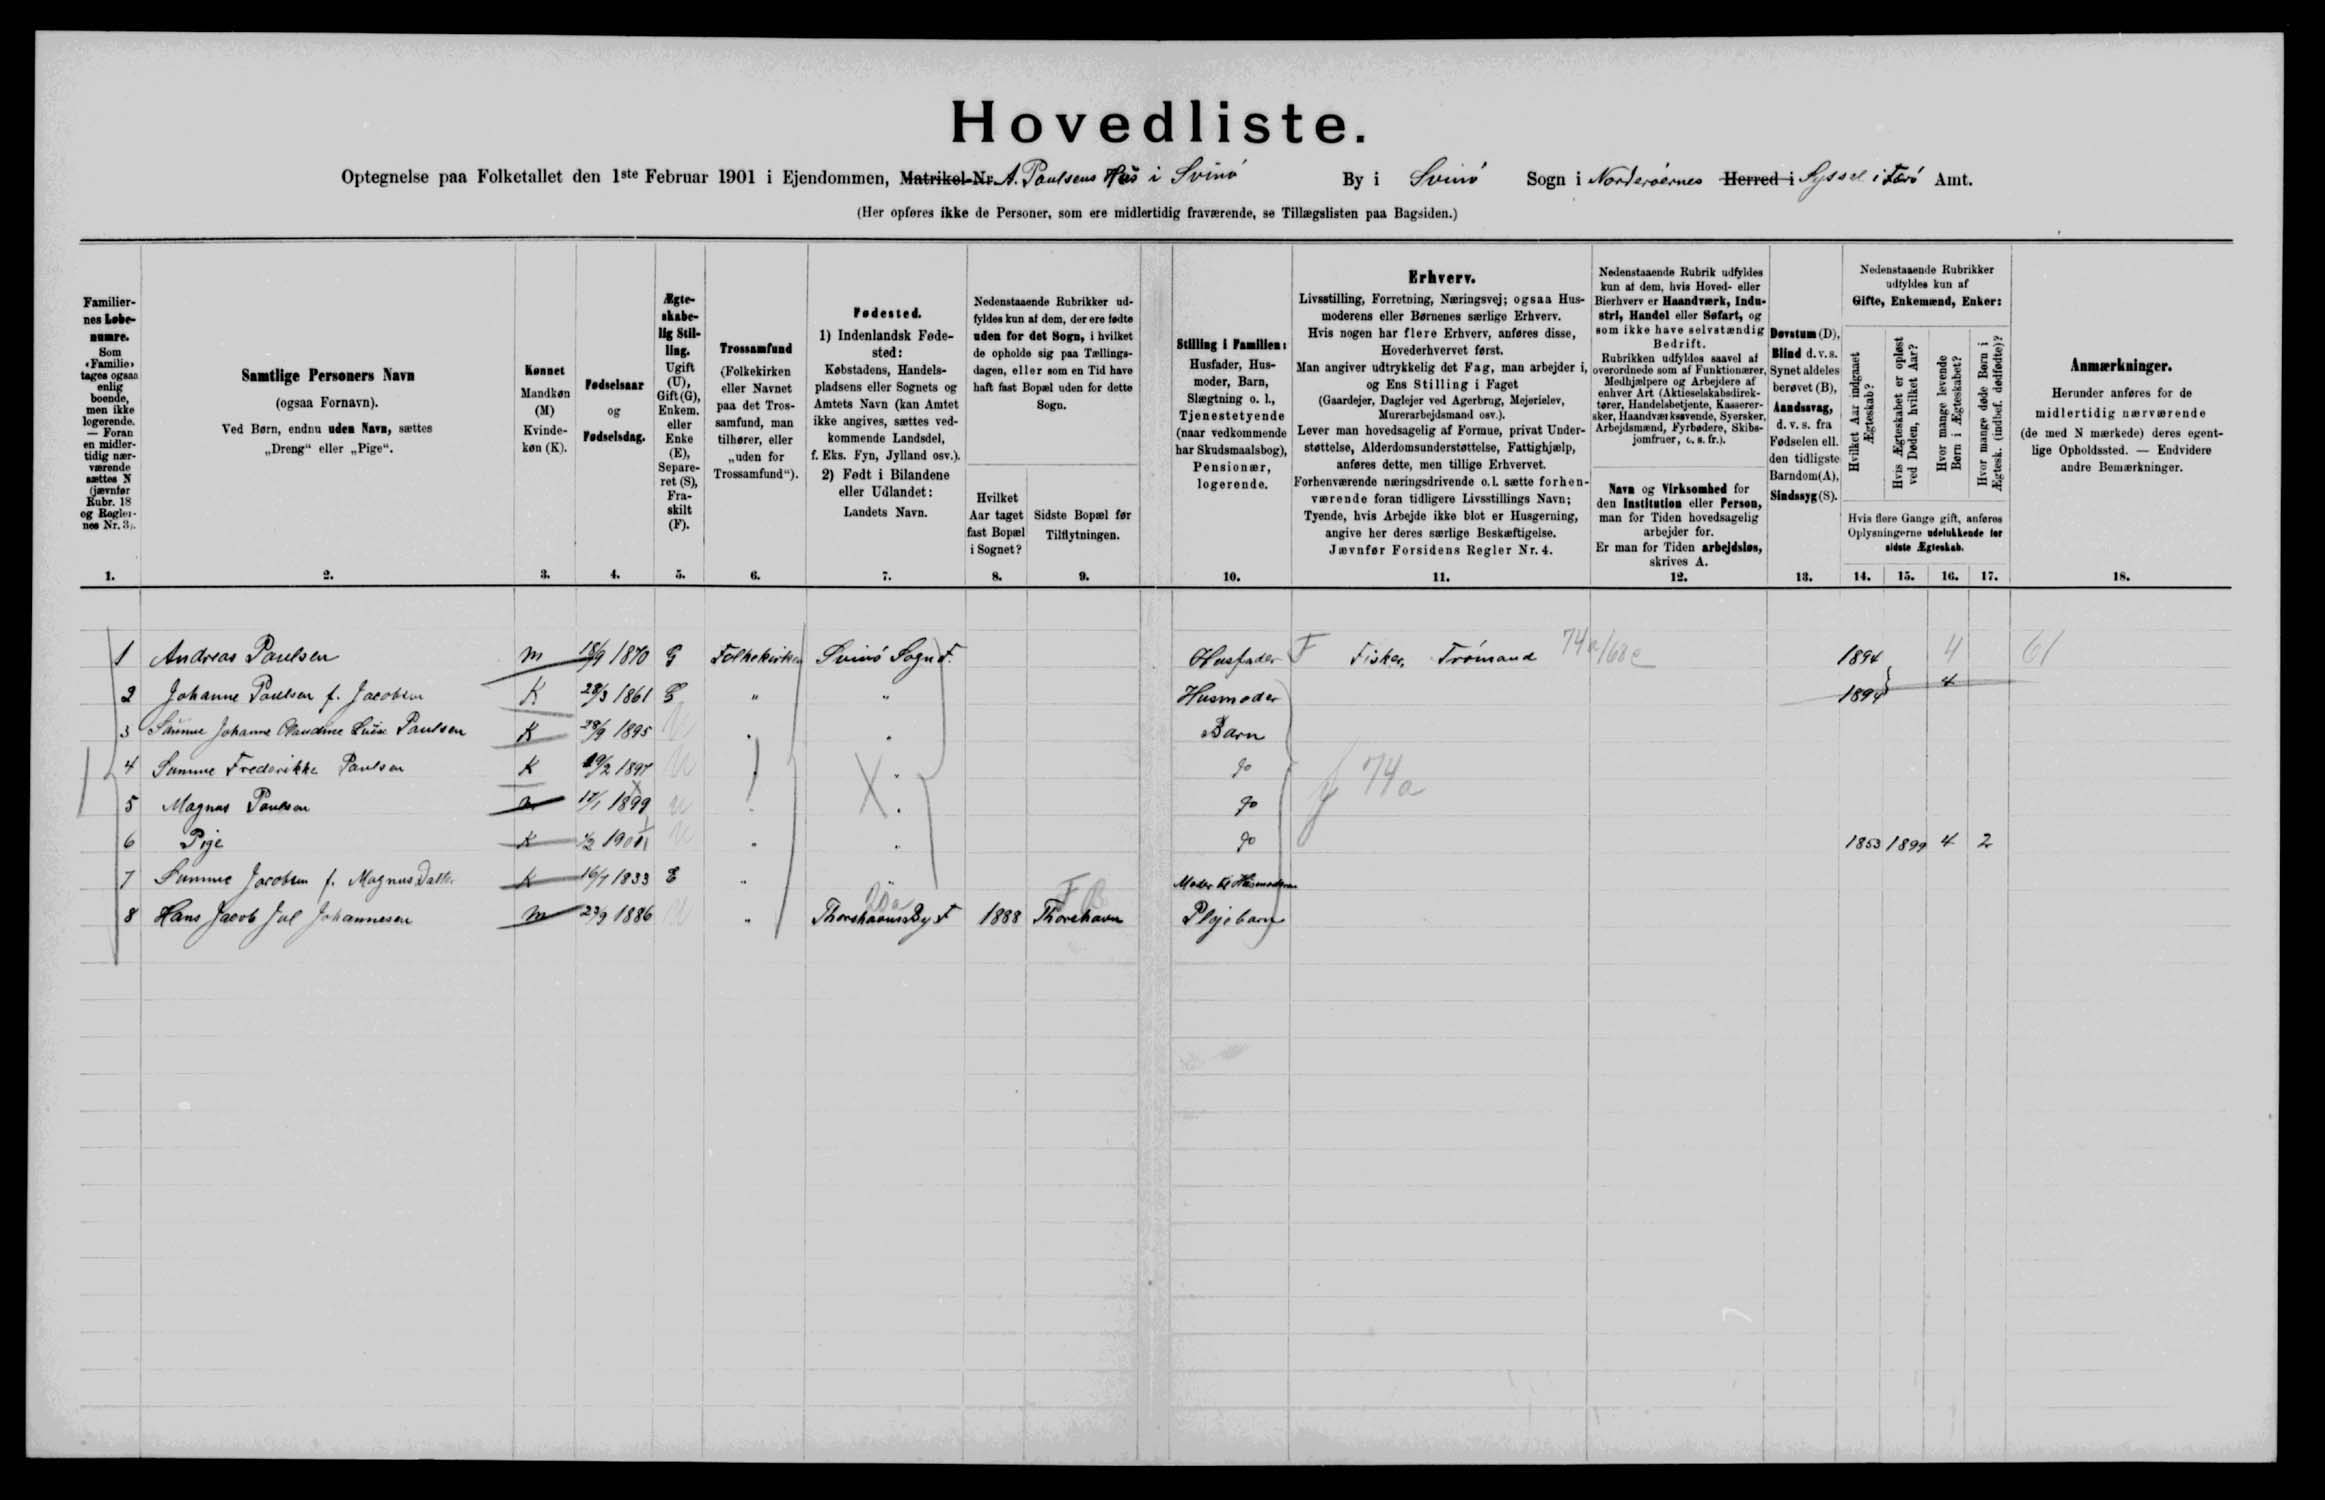 Hovedliste.
Optegnelse paa Folketallet den 1ste Februar 1901 i Ejendommen, Matrikel-Nr. A. Paulsens Hus i Svinö By i Svinö Sogn i Norderöernes Herred i Syssel i Færö Amt.
(Her opføres ikke de Personer, som ere midlertidig fraværende, se Tillægslisten paa Bagsiden.)
Familiernes Løbenumre.
Som «Familie» tages ogsaa enlig boende, men ikke logerende. — Foran en midlertidig nærværende sættes N (jævnfør Rubr. 18 og Reglernes Nr. 3).
1.
Samtlige Personers Navn
(ogsaa Fornavn).
Ved Børn, endnu uden Navn, sættes
„Dreng" eller „Pige".
2.
Kønnet
Mandkøn (M)
Kvindekøn (K).
3.
Fødselsaar
og
Fødselsdag.
4.
Ægteskabelig Stilling.
Ugift (U), Gift (G), Enkem. eller Enke (E), Separeret (S), Fraskilt (F).
5.
Trossamfund
(Folkekirken eller Navnet paa det Trossamfund, man tilhører, eller „uden for Trossamfund").
6.
Fødested.
1) Indenlandsk Fødested:
Købstadens, Handelspladsens eller Sognets og Amtets Navn (kan Amtet ikke angives, sættes vedkommende Landsdel, f. Eks. Fyn, Jylland osv.).
2) Født i Bilandene eller Udlandet:
Landets Navn.
7.
Nedenstaaende Rubrikker udfyldes kun af dem, der ere fødte uden for det Sogn, i hvilket de opholde sig paa Tællingsdagen, eller som en Tid have haft fast Bopæl uden for dette Sogn.
Hvilket Aar taget fast Bopæl i Sognet?
8.
Sidste Bopæl før Tilflytningen.
9.
Stilling i Familien:
Husfader, Husmoder, Barn, Slægtning o. l., Tjenestetyende (naar vedkommende har Skudsmaalsbog), Pensionær, logerende.
10.
Erhverv.
Livsstilling, Forretning, Næringsvej; ogsaa Husmoderens eller Børnenes særlige Erhverv.
Hvis nogen har flere Erhverv, anføres disse, Hovederhvervet først.
Man angiver udtrykkelig det Fag, man arbejder i, og Ens Stilling i Faget
(Gaardejer, Daglejer ved Agerbrug, Mejerielev, Murerarbejdsmand osv.).
Lever man hovedsagelig af Formue, privat Understøttelse, Alderdomsunderstøttelse, Fattighjælp, anføres dette, men tillige Erhvervet.
Forhenværende næringsdrivende o. l. sætte forhenværende foran tidligere Livsstillings Navn;
Tyende, hvis Arbejde ikke blot er Husgerning, angive her deres særlige Beskæftigelse.
Jævnfør Forsidens Regler Nr. 4.
11.
Nedenstaaende Rubrik udfyldes kun af dem, hvis Hoved- eller Bierhverv er Haandværk, Industri, Handel eller Søfart, og som ikke have selvstændig Bedrift.
Rubrikken udfyldes saavel af overordnede som af Funktionærer, Medhjælpere og Arbejdere af enhver Art (Aktieselskabsdirektører, Handelsbetjente, Kasserersker, Haandværkssvende, Syersker, Arbejdsmænd, Fyrbødere, Skibsjomfruer, o. s. fr.).
Navn og Virksomhed for den Institution eller Person, man for Tiden hovedsagelig arbejder for.
Er man for Tiden arbejdsløs, skrives A.
12.
Døvstum (D),
Blind d. v. s. Synet aldeles berøvet (B),
Aandssvag, d. v. s. fra Fødselen ell. den tidligste Barndom (A),
Sindssyg (S).
13.
Nedenstaaende Rubrikker udfyldes kun af
Gifte, Enkemænd, Enker:
Hvilket Aar indgaaet Ægteskab?
Hvis Ægteskabet er opløst ved Døden, hvilket Aar?
Hvor mange levende Børn i Ægteskabet?
Hvor mange døde Børn i Ægtesk. (indbef. dødfødte)?
Hvis flere Gange gift, anføres Oplysningerne udelukkende for sidste Ægteskab.
14. 15. 16. 17.
Anmærkninger.
Herunder anføres for de midlertidig nærværende (de med N mærkede) deres egentlige Opholdssted. — Endvidere andre Bemærkninger.
18.
1 Andreas Paulsen M 18/9 1870 G Folkekirken Svinö Sogn F. Husfader F Fisker, Trömand 74a/68c 1894 4 61
2 Johanne Paulsen f. Jacobsen K 28/3 1861 G " " Husmoder 1894 4
3 Sunneve Johanne Claudine Luise Paulsen K 28/9 1895 U " " Barn
4 Sunneve Frederikke Paulsen K 19/2 1897 U " " do
5 Magnus Paulsen M 1899 U " X " do f 74a
6 Pige K U " " do 1853 1899 4 2
7 Sunneve Jacobsen f. Magnus Datter K 16/7 1833 E " Moder til Husmoderen
8 Hans Jacob Jul Johannesen M 29/9 1886 U " Thorshavns By F 1888 Thorshavn Plejebarn